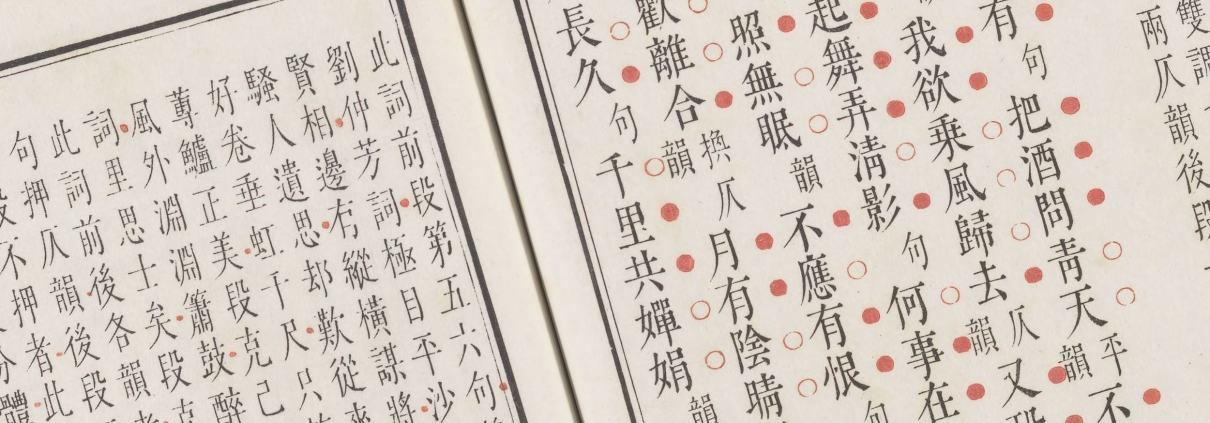 雙調
兩仄韻後段
有句把酒問青天平韻不
我欲乘風歸去仄韻又恐
起舞弄清影句何事在
照無眠韻不應有恨句
歡離合換仄韻月有陰晴
長久句千里共嬋娟韻
此詞前段第五六句
劉仲芳詞極目平沙
賢相邊有縱橫謀將
騷人遺思却歎從來
好卷垂虹千尺只
蓴鱸正美段克己
風外淵淵簫鼓醉
詞里思士矣段克
此詞前後各韻
句押仄韻後段
段不押者此
分體